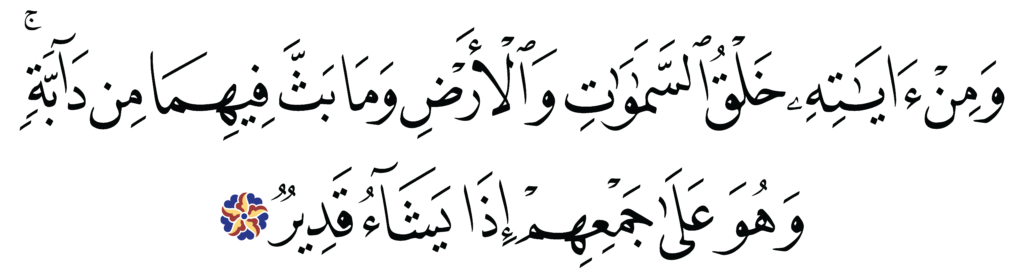 وَمِنْ ءَايَـٰتِهِۦ خَلْقُ ٱلسَّمَـٰوَٰتِ وَٱلْأَرْضِ وَمَا بَثَّ فِيهِمَا مِن دَآبَّةٍۚ
وَهُوَ عَلَىٰ جَمْعِهِمْ إِذَا يَشَآءُ قَدِيرٌ